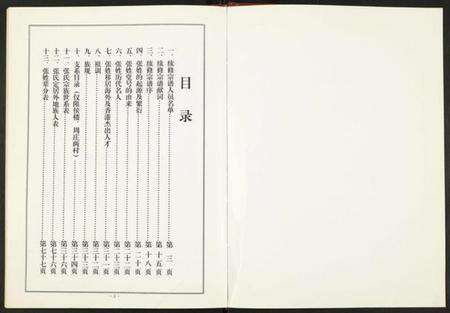 目录
一、续修宗谱人员名单……第三页
二、续修宗谱献词……第十五页
三、续修宗谱序……第十八页
四、张姓的起源及繁衍……第二十页
五、张姓堂号的由来……第二十二页
六、张姓历代名人……第二十三页
七、张姓移居海外及香港杰出人才……第三十一页
八、祖训……第三十二页
九、族规……第三十三页
十、支系目录（仅限侯楼、周庄两村）……第三十四页
十一、张氏宗族世系表……第三十六页
十二、张氏定居外地族人表……第七十六页
十三、张姓辈分表……第七十七页